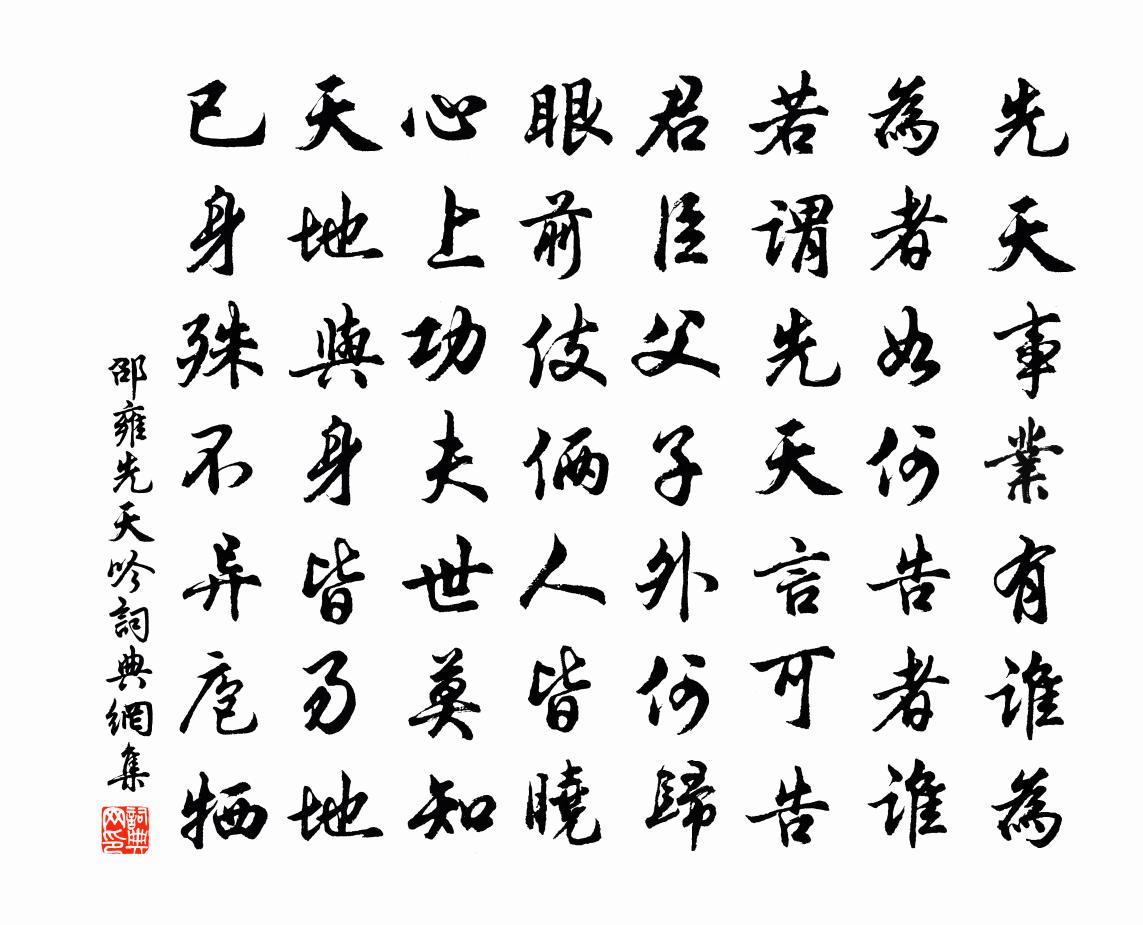 先天事業有誰為
為者如何告者誰
若謂先天言可告
君臣父子外何歸
眼前伎倆人皆曉
心上功夫世莫知
天地與身皆易地
已身殊不异庖牺
邵雍先天吟詞典網集
詞典网印